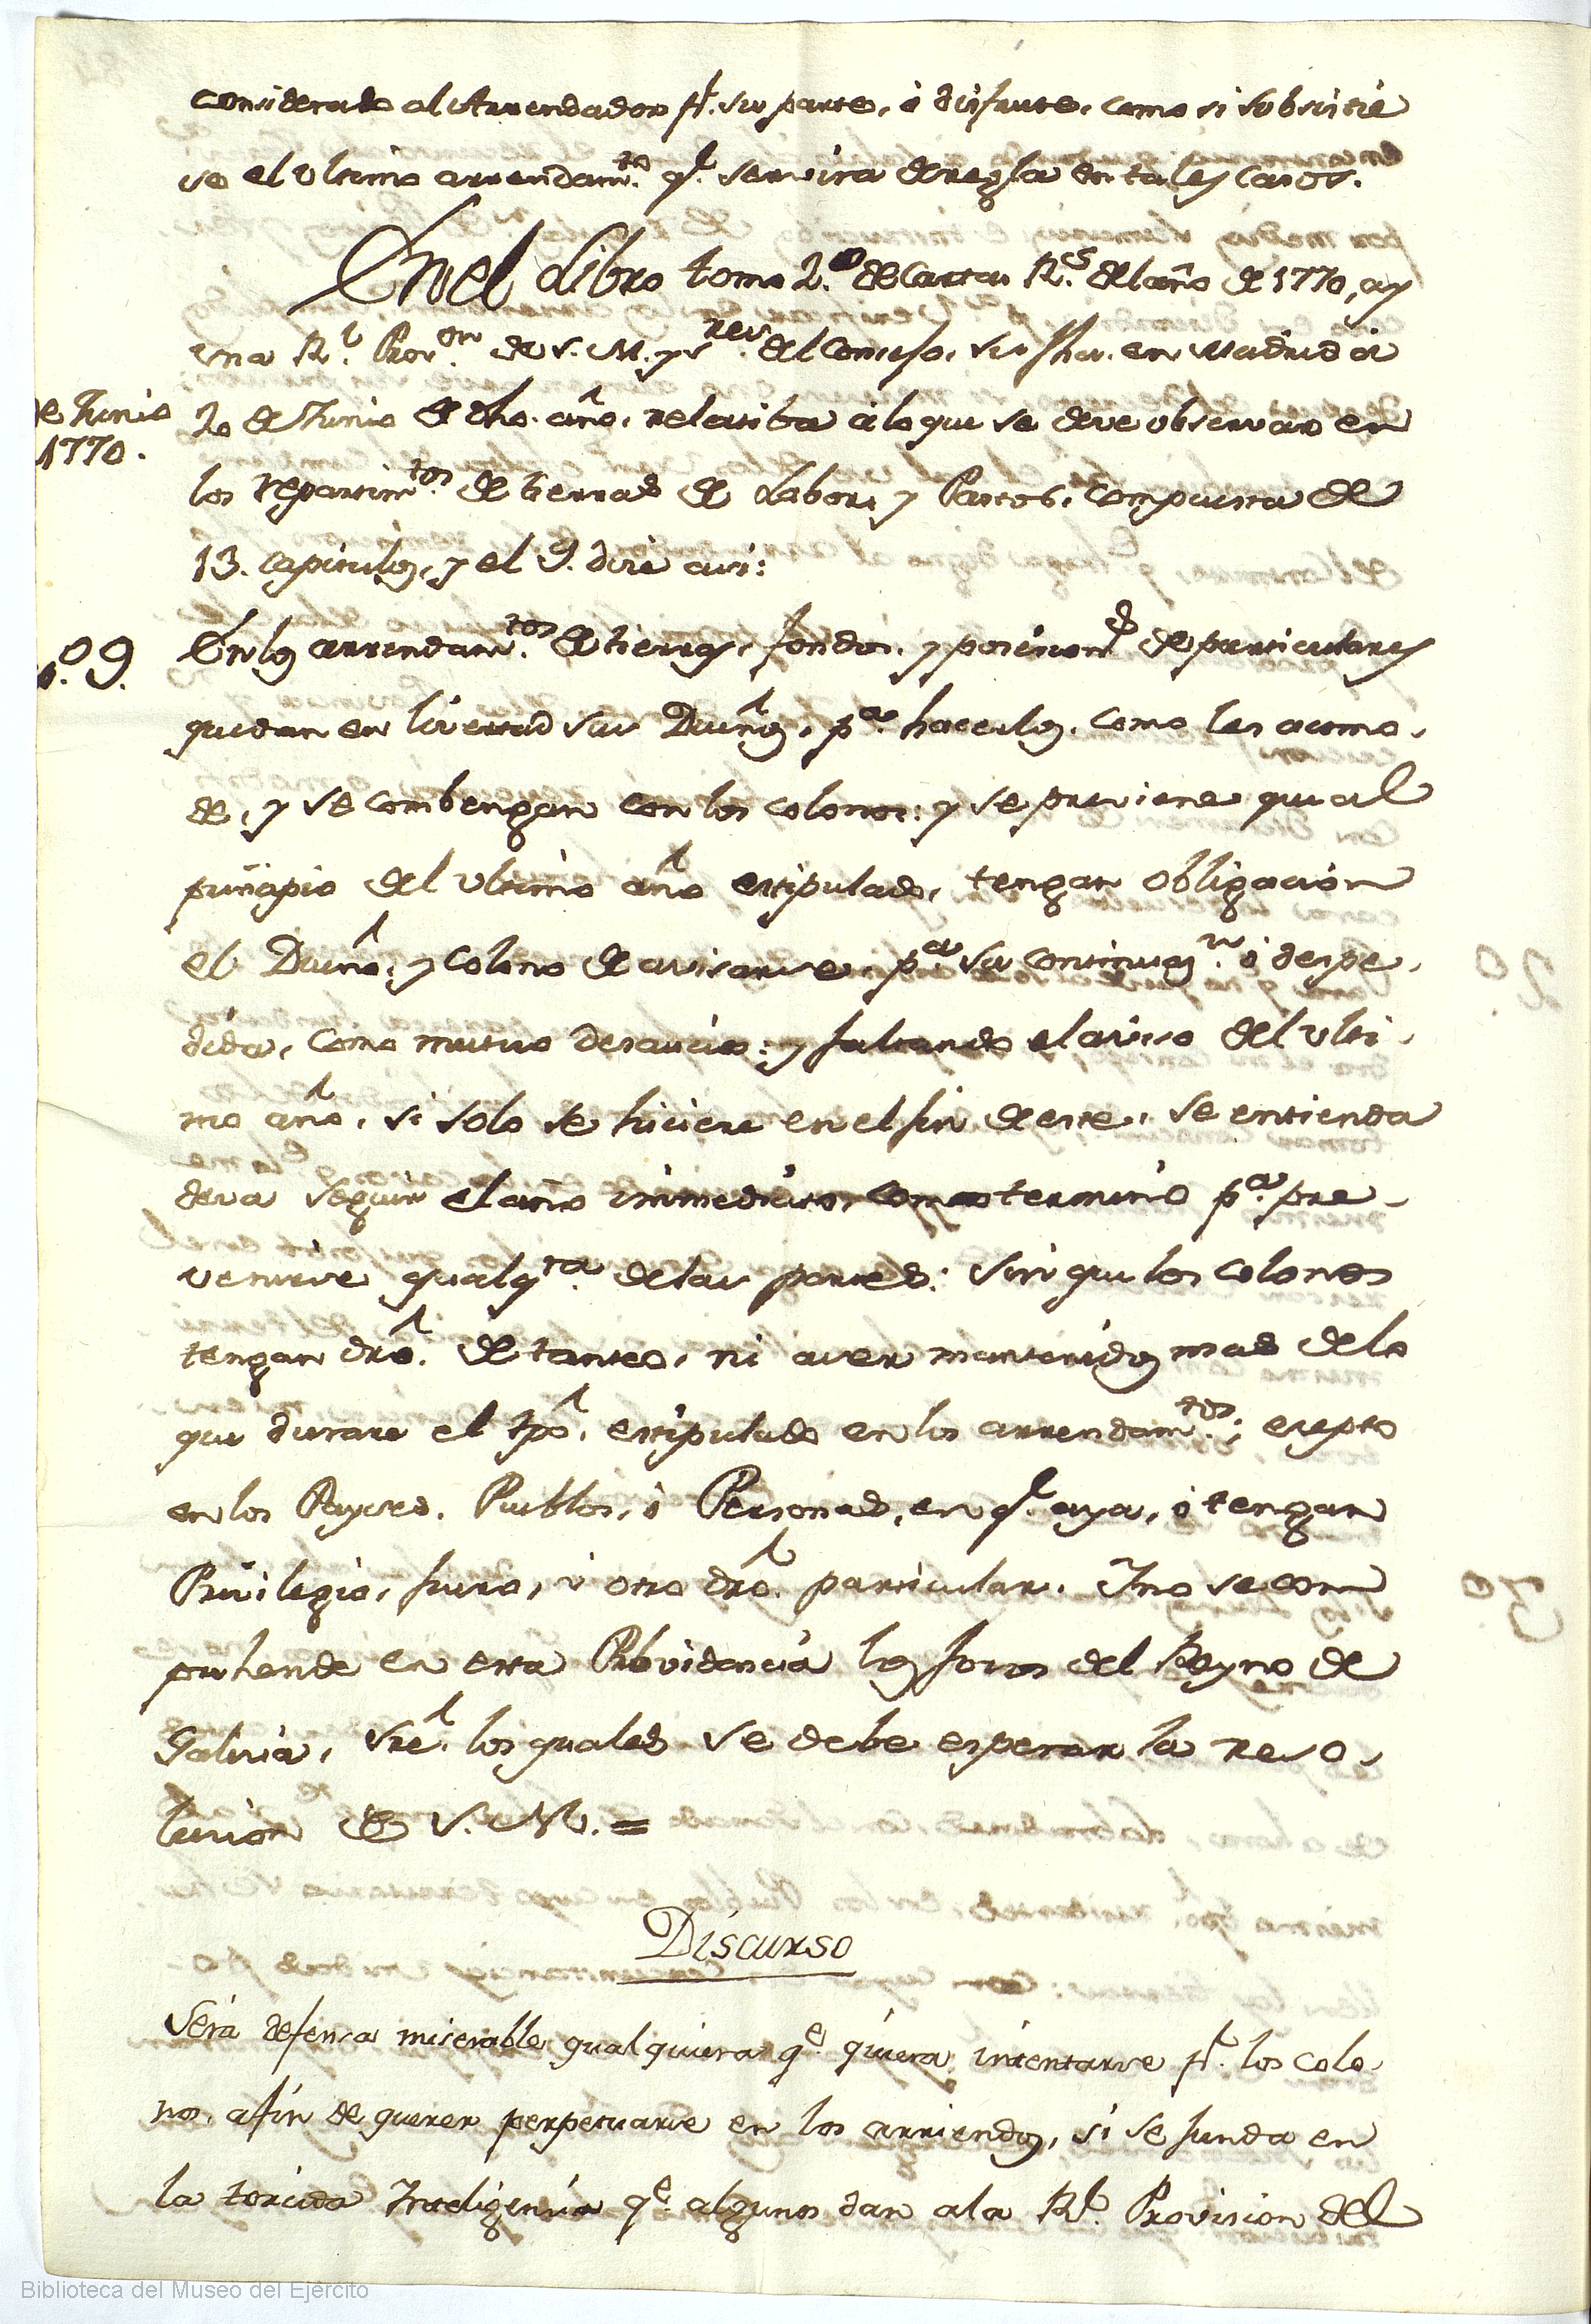 considerado al Arrendador pr. su parte, ó disfrute, como si subsistie
se el ultimo arrendamto. qe. servira de regla en tales casos.
En el Libro tomo 2.º de Cartas Rs. del año de 1770, ay
una Rl. Proon. de S. M. y Sres. del Consejo, su fha. en Madrid á
de Junio
1770.
20 de Junio de dho. año, relatiba á lo que se deve observar en
los repartimtos. de tierras de Labor, y Pastos, compuesta de
13. capitulos, y el 9. dice asi:
º 9.
En los arrendamtos. de tierras, fondos, y posesiones de particulares
quedan en livertad sus Dueños, pa. hacerlos, como les acomo-
de, y se combengan con los colonos: y se previene que al
principio del ultimo año estipulado, tengan obligacion
el Dueño, y colono de avisarse, pa. su continuazn. ó despe-
dida, como mutuo desaucio: y faltando el aviso del ulti-
mo año, si solo se hiciere en el fin de este, se entienda
deva seguir el año inmediato, como termino pa. pre-
venirse qualqra. de las partes: sin que los colonos
tengan dro. de tanteo, ni a ser mantenidos mas de lo
que durare el tpo. estipulado en los arrendamtos.; ecepto
en los Payses, Pueblos, ó Personas, en qe. aya, ó tengan
Privilegio, fuero, ú otro dro. particular. Y no se com
prehende en esta Providencia los foros del Reyno de
Galicia, sre. los quales se debe esperar la reso-
lucion de S. M. =
Discurso
Será defensa miserable qualquiera qe. quiera intentarse pr. los colo-
nos, a fin de querer perpetuarse en los arriendos, si se funda en
la torcida Inteligencia qe. algunos dan a la Rl. Provision del
Biblioteca del Museo del Ejército